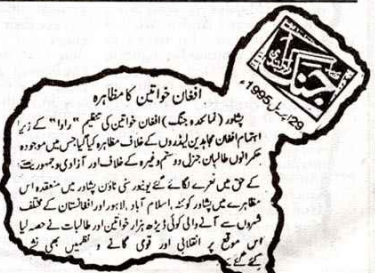 جنگ
راولپنڈی
29 اپریل 1995ء
افغان خواتین کا مظاہرہ
پشاور (نمائندہ جنگ) افغان خواتین کی تنظیم "راوا" کے زیر
اہتمام افغان مجاہدین لیڈروں کے خلاف مظاہرہ کیا گیا جس میں موجودہ
حکمرانوں طالبان جنرل دوستم وغیرہ کے خلاف اور آزادی و جمہوریت
کے حق میں نعرے لگائے گئے یونیورسٹی ٹاؤن پشاور میں منعقدہ اس
مظاہرے میں پشاور کوئٹہ، اسلام آباد، لاہور اور افغانستان کے مختلف
شہروں سے آنے والی کوئی ڈیڑھ ہزار خواتین اور طالبات نے حصہ لیا
اس موقع پر انقلابی اور قومی گانے و نظمیں بھی نشر
کئے گئے